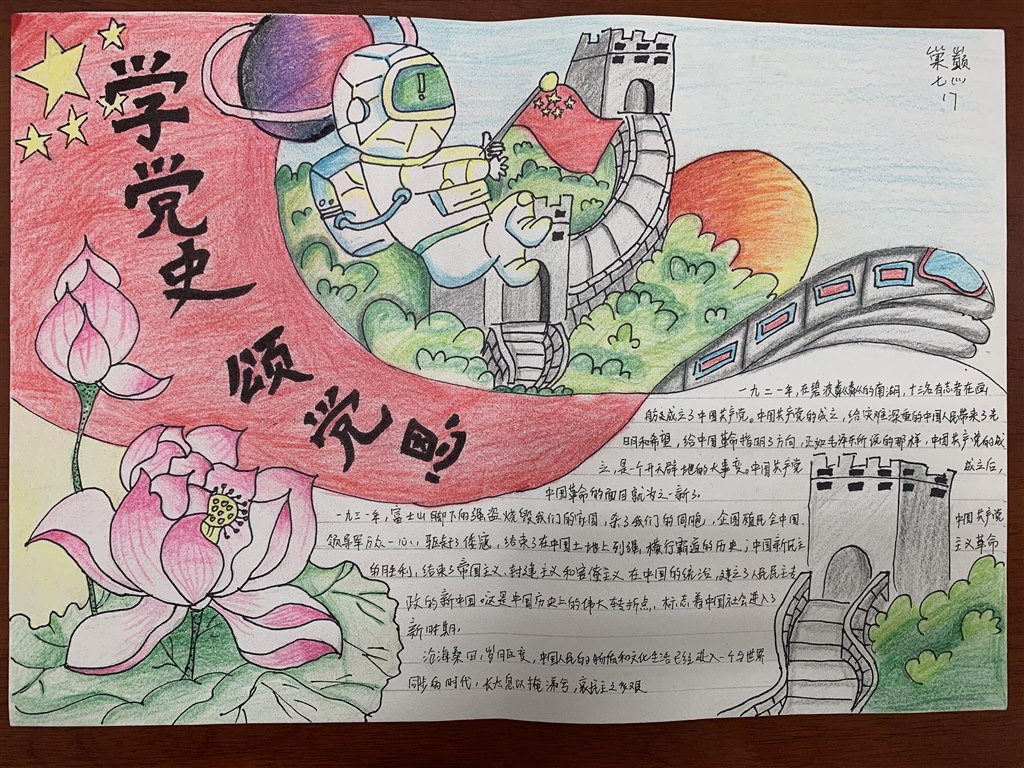 学党史
颂党恩
巅
七
17
一九二一年,在碧波粼粼的南湖,十三名有志者在画
舫上成立了中国共产党。中国共产党的成立,给灾难深重的中国人民带来了光
明和希望,给中国革命指明了方向,正如毛泽东所说的那样,中国共产党的成
立,是一个开天辟地的大事变。中国共产党 成立后,
中国革命的面目就为之一新了。
一九三一年,富士山脚下的强盗烧毁我们的家园,杀了我们的同胞,企图殖民全中国. 中国共产党
领导军万众一心,驱赶了倭寇,结束了在中国土地上列强横行霸道的历史;中国新民主 主义革命
的胜利,结束了帝国主义、封建主义和官僚主义在中国的统治,建立了人民民主专
政的新中国.这是中国历史上的伟大转折点,标志着中国社会进入了
新时期.
沧海桑田,岁月巨变,中国人民的物质和文化生活已经进入一个与世界
同步的时代,长太息以掩涕兮,哀民生之多艰